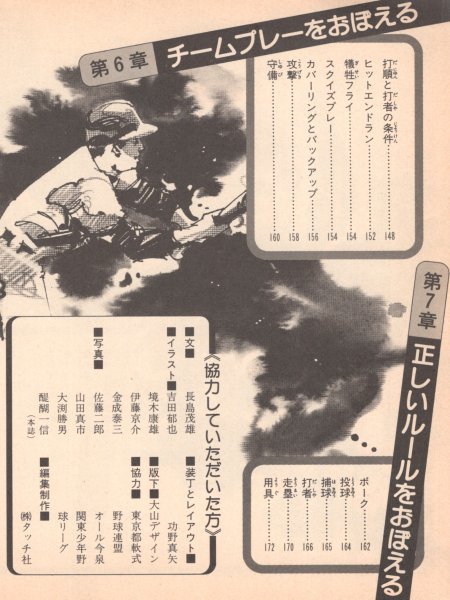 第6章 チームプレーをおぼえる
打順と打者の条件 148
ヒットエンドラン 152
犠牲フライ 154
スクイズプレー 154
カバーリングとバックアップ 156
攻撃 158
守備 160
第7章 正しいルールをおぼえる
ボーク 162
投球 164
捕球 165
打者 166
走塁 170
用具 172
《協力していただいた方》
■文■
長島茂雄
■イラスト■
吉田郁也
境木康雄
伊藤京介
金成泰三
■写真■
佐藤二郎
山田真市
大渕勝男
醍醐一信
(本誌)
■装丁とレイアウト■
功野真矢
■版下■大山デザイン
■協力■東京都軟式
野球連盟
オール今泉
関東少年野
球リーグ
■編集制作■
㈱タッチ社